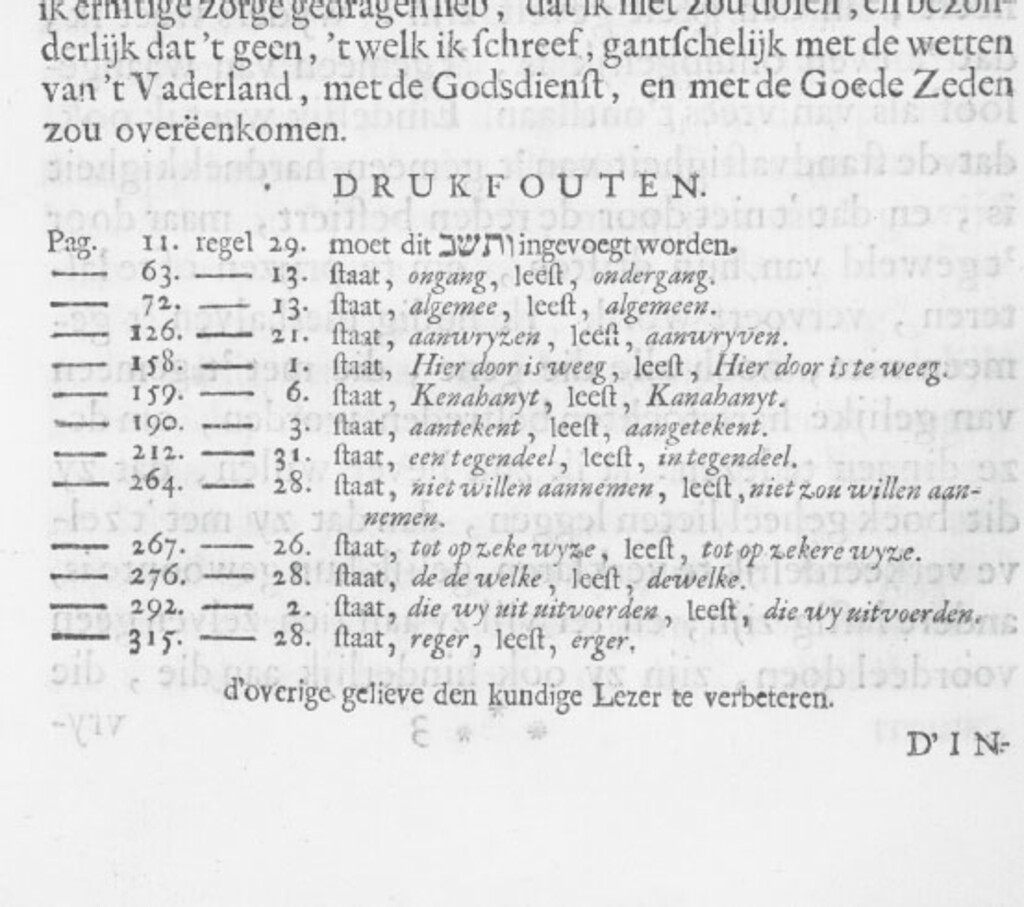 ik ernſtige zorge gedragen heb, dat ik niet zou dolen, en bezon-
derlijk dat 't geen, 't welk ik ſchreef, gantſchelijk met de wetten
van 't Vaderland, met de Godsdienſt, en met de Goede Zeden
zou overëenkomen.
DRUKFOUTEN.
Pag. 11. regel 29. moet dit ותשב ingevoegt worden.
63. — 13. ſtaat, ongang, leeſt, ondergang.
— 72. — 13. ſtaat, algemee, leeſt, algemeen.
— 126. — 21. ſtaat, aanwryzen, leeſt, aanwryven.
— 158. — 1. ſtaat, Hier door is weeg, leeſt, Hier door is te weeg.
— 159. — 6. ſtaat, Kenahanyt, leeſt, Kanahanyt.
— 190. — 3. ſtaat, aantekent, leeſt, aangetekent.
— 212. — 31. ſtaat, een tegendeel, leeſt, in tegendeel.
— 264. — 28. ſtaat, niet willen aannemen, leeſt, niet zou willen aan-
nemen.
— 267. — 26. ſtaat, tot op zeke wyze, leeſt, tot op zekere wyze.
— 276. — 28. ſtaat, de de welke, leeſt, dewelke.
— 292. — 2. ſtaat, die wy uit uitvoerden, leeſt, die wy uitvoerden.
— 315. — 28. ſtaat, reger, leeſt, erger.
d'overige gelieve den kundige Lezer te verbeteren.
D'IN-